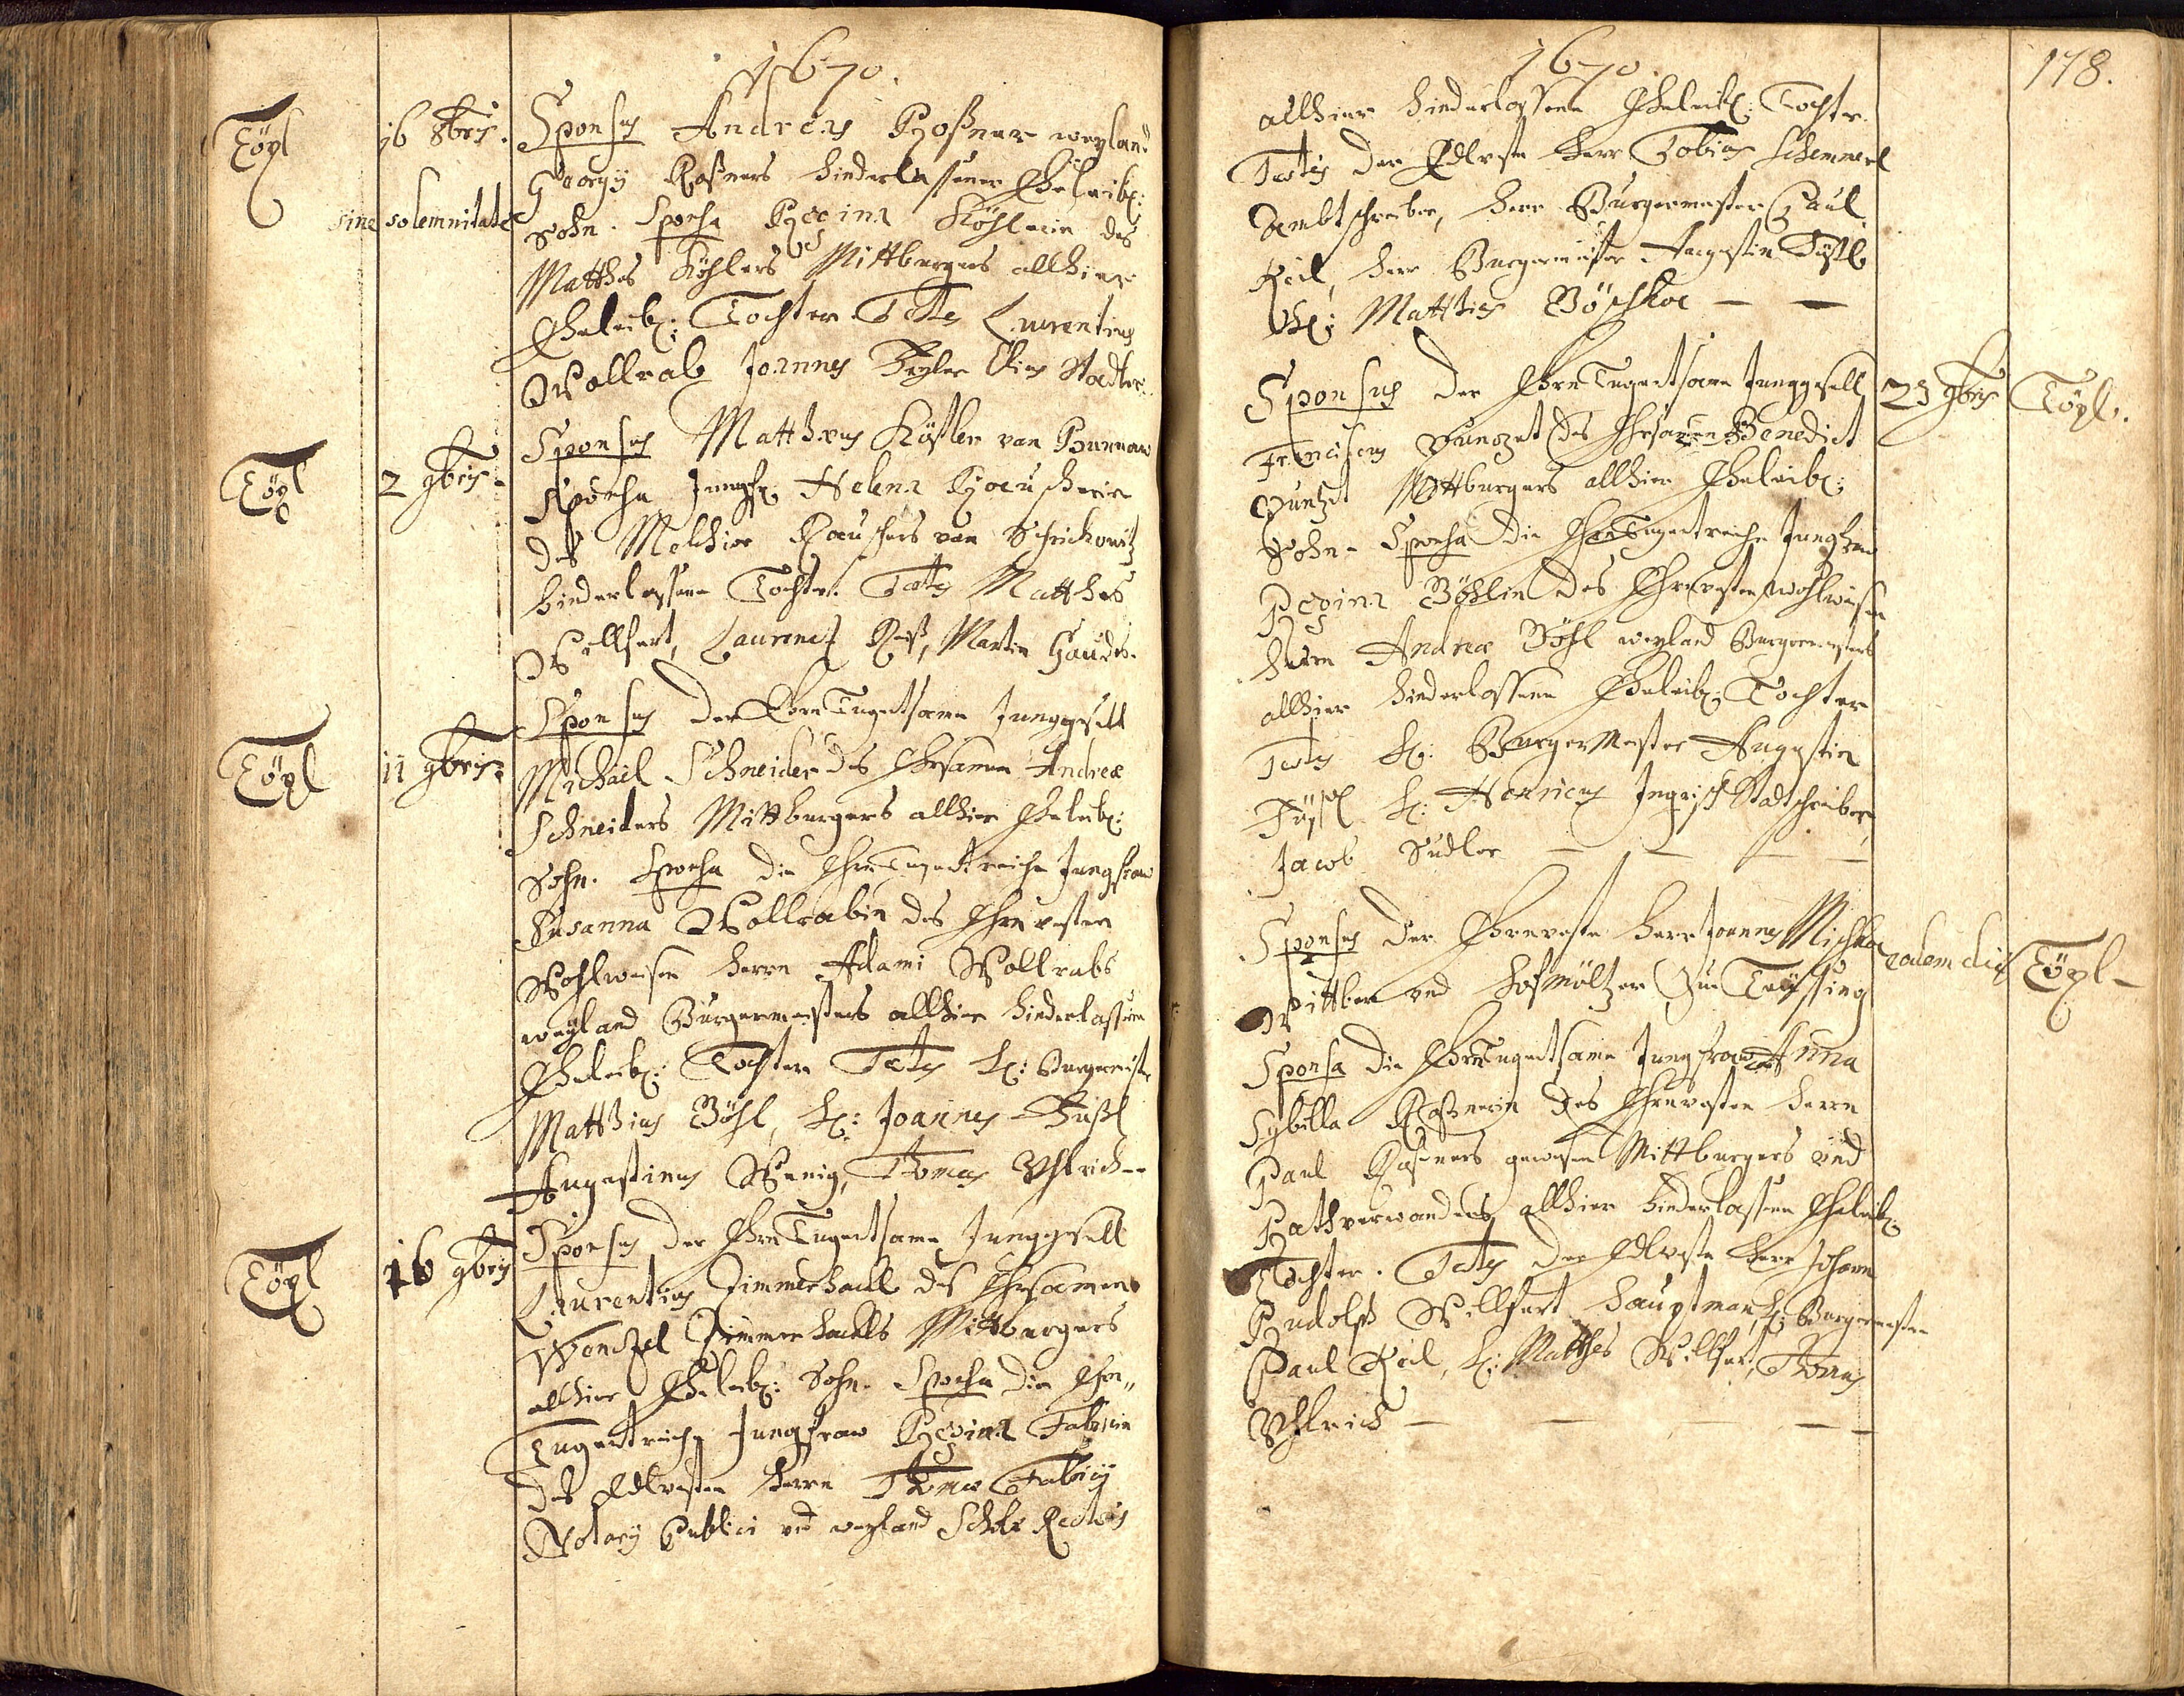 1670.
Töpl
16 8bris.
sine solemnitate
Sponsus Andreas Roßner weyland
Georgij Roßners hinderlassener Eheleibl:
Sohn. Sponsa Regina Köhlerin des
Matthes Köhlers Mittburgers allhier
Eheleibl: Tochter Testes Laurentius
Wollrab Joannes Elias Stadler
Töpl
2 9bris.
Sponsus Matthaeus Kößler von
Sponsa Jungfr: Helena Rauscherin
des Melchior Rauschers von Schrickowitz
hinderlassene Tochter. Testes Matthes
Willfert, Laurentz Reiß, Martin
Töpl
11 9bris.
Sponsus der Ehrn Tugentsame Junggesell
Michael Schneider des Ehrsamen Andreae
Schneiders Mittburgers allhier Eheleibl:
Sohn. Sponsa die Ehrn Tugentreiche Jungfraw
Susanna Wollrabin des Ehrnvesten
Wohlweisen Herrn Adami Wollrabs
weyland Burgermeisters allhier hinderlassene
Eheleibl: Tochter Testes H: Burgermeister
Matthias Böhl, H: Joannes Füßl
Augustinus Wenig, Thomas Vhlrich
Töpl
16 9bris
Sponsus der Ehrn Tugentsame Junggesell
Laurentius Zimmerhackl des Ehrsamen
Wentzel Zimmerhackls Mittburgers
allhier Eheleibl: Sohn. Sponsa die Ehrn
Tugentreiche Jungfraw Regina Fabricin
des Edlvesten Herrn Thomae Fabricij
Notarij Publici vnd weyland Scholae Rectoris
1670.
178.
allhier hinderlassene Eheleibl: Tochter.
Testes der Edlveste Herr Tobias Schemmerl
Ambtschreiber, Herr Burgermeister Paul
Keil, Herr Burgermeister Augustin Füßl
H: Matthias Böschka
Sponsus der Ehrn Tugentsame Junggesell
23 9bris
Töpl.
Franciscus des Ehrsamen Benedict
Mittburgers allhier Eheleibl:
Sohn. Sponsa die Ehrn Tugentreiche Jungfraw
Regina Böhlin des Ehrnvesten Wohlweisen
Herrn Andreae Böhl weyland Burgermeisters
allhier hinderlassene Eheleibl: Tochter
Testes H: BurgerMeister Augustin
Füßl H: Henricus Ingrisch Stadtschreiber,
Jacob Sudler
Sponsus der Ehrnveste Herr Joannes Mischka
eadem die
Töpl
Wittber vnd Hofmöltzer zu Teyssing
Sponsa die Ehrn Tugentsame Jungfraw Anna
Sybilla Roßnerin des Ehrnvesten Herrn
Paul Roßners gewesen Mittburgers vnd
Rathverwanders allhier hinderlassene Eheleibl:
Tochter. Testes der Edlveste Herr Johann
Rudolph Willfert Hauptman, H: Burgermeister
Paul Keil, H: Matthes Willfert, Thomas
Vhlrich